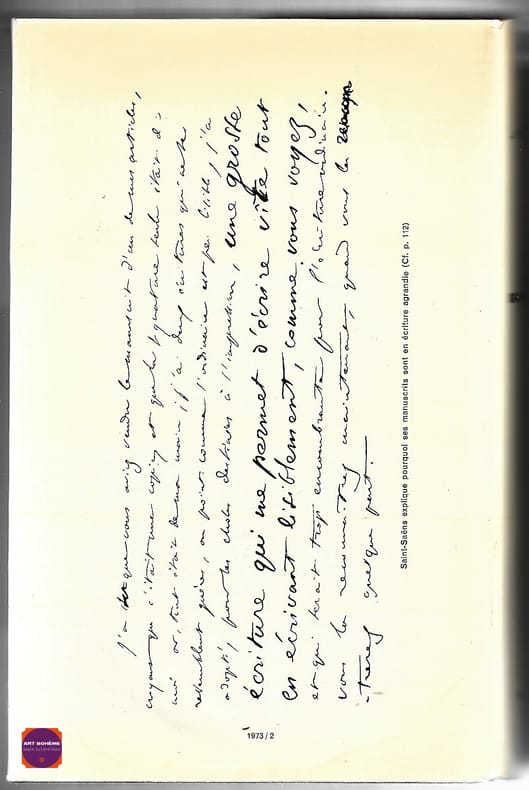 J'ai su que vous aviez vendu le manuscrit d'un de mes articles,
croyant que c'était une copie et que la signature seule était de
moi or, tout était de ma main ; j'ai deux écritures qui ne se
ressemblent guères, et comme l'ordinaire est peu lisible, j'ai
adopté, pour les choses destinées à l'impression, une grosse
écriture qui me permet d'écrire vite tout
en écrivant lisiblement, comme vous voyez,
et qui serait trop encombrante pour l'écriture ordinaire.
Vous la reconnaîtrez maintenant, quand vous la
-trerez quelque part.
Saint-Saëns explique pourquoi ses manuscrits sont en écriture agrandie (Cf. p. 112)
1973 / 2
ART BOHÈME